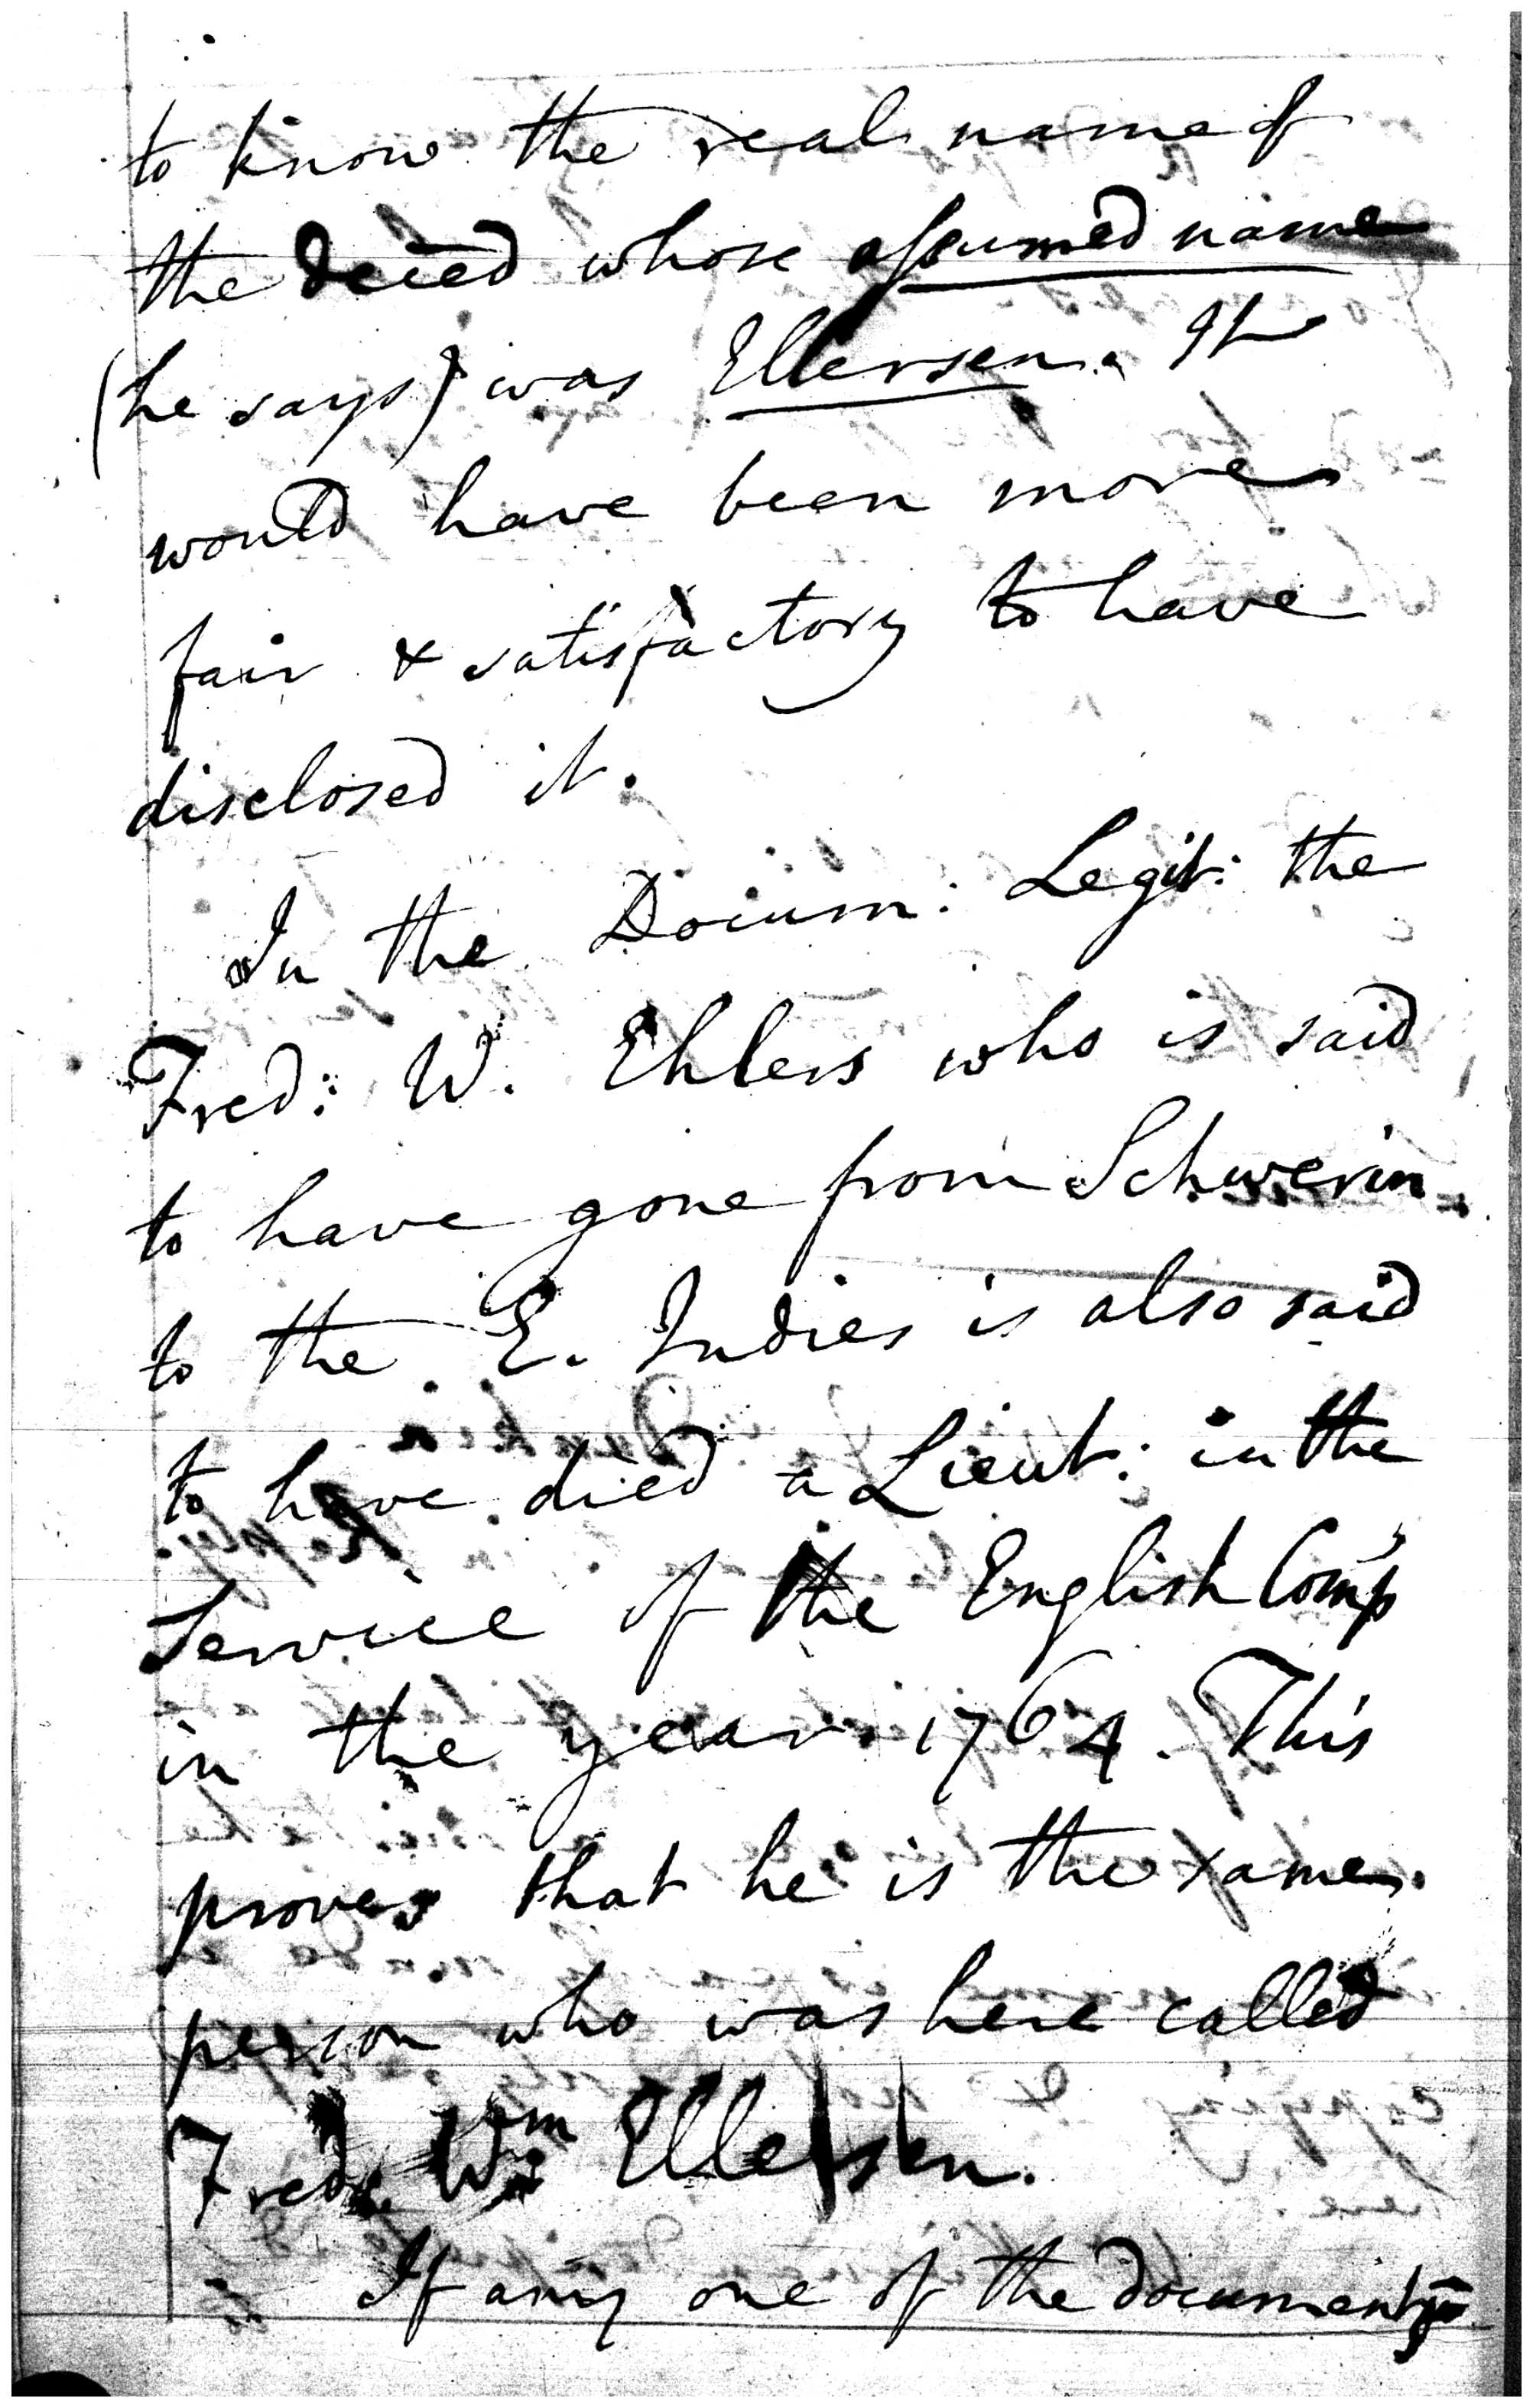 to know the real name of
the deced whose assumed name
(he says) was Ellersen. It
would have been more
fair & satisfactory to have
disclosed it.
In the Docum: Legit: the
Fred: W. Ehlers who is said
to have gone from Schwerin
to the E. Indies is also said
to have died a Lieut: in the
Service of the English Comp
in the year 1764. This
proves that he is the same
person who was here called
Fred. Wm Ellersen.
If any one of the documents